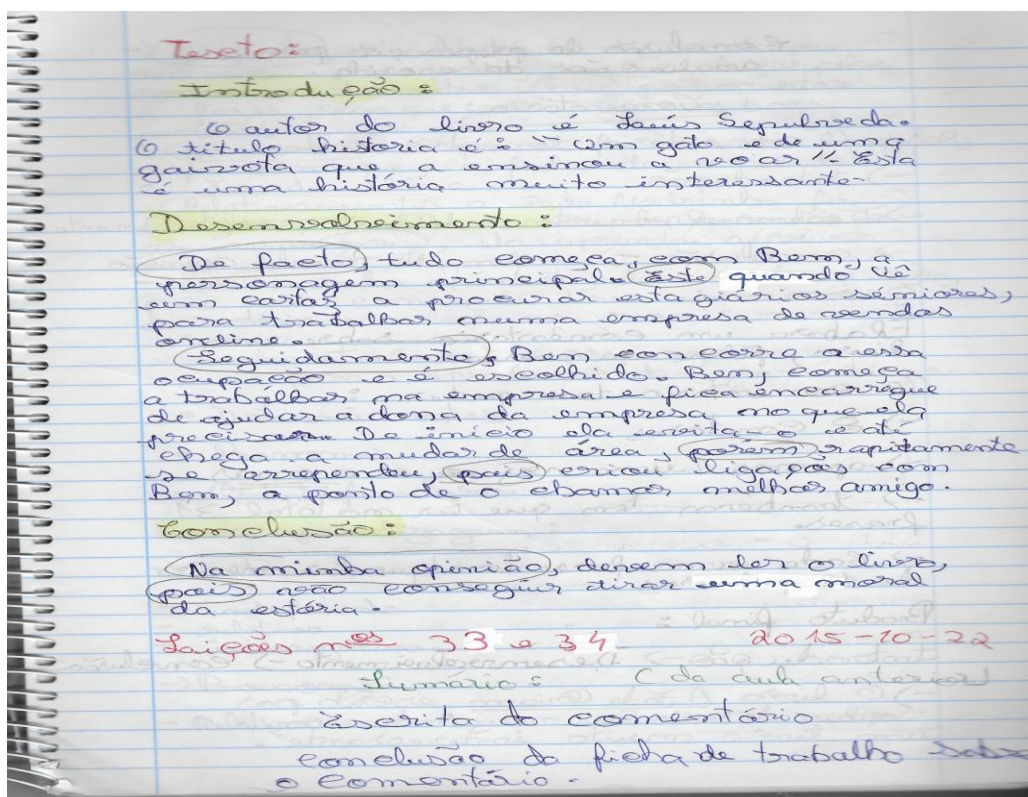 Texto:
Introdução:
O autor do livro é Luís Sepulveda.
O título história é: "Um gato e de uma
gaivota que a ensinou a voar" Esta
é uma história muito interessante.
Desenvolvimento:
De facto, tudo começa, com Ben, a
personagem principal. Este quando vê
um cartaz a procurar estagiários séniores,
para trabalhar numa empresa de vendas
online.
Seguidamente, Ben concorre a essa
ocupação e é escolhido. Ben, começa
a trabalhar na empresa e fica encarregue
de ajudar a dona da empresa, no que ela
precisar. De início ela evita-o e até
chega a mudar de área, porém rapitamente
se arrependeu, pois criou ligações com
Ben, a ponto de o chamar melhor amigo.
Conclusão:
Na minha opinião, devem ler o livro,
pois vão conseguir tirar uma moral
da estória.
Laições nos 33 e 34 2015-10-22
Sumário: (da aula anterior)
Escrita do comentário
conclusão da ficha de trabalho sobre
o comentário.